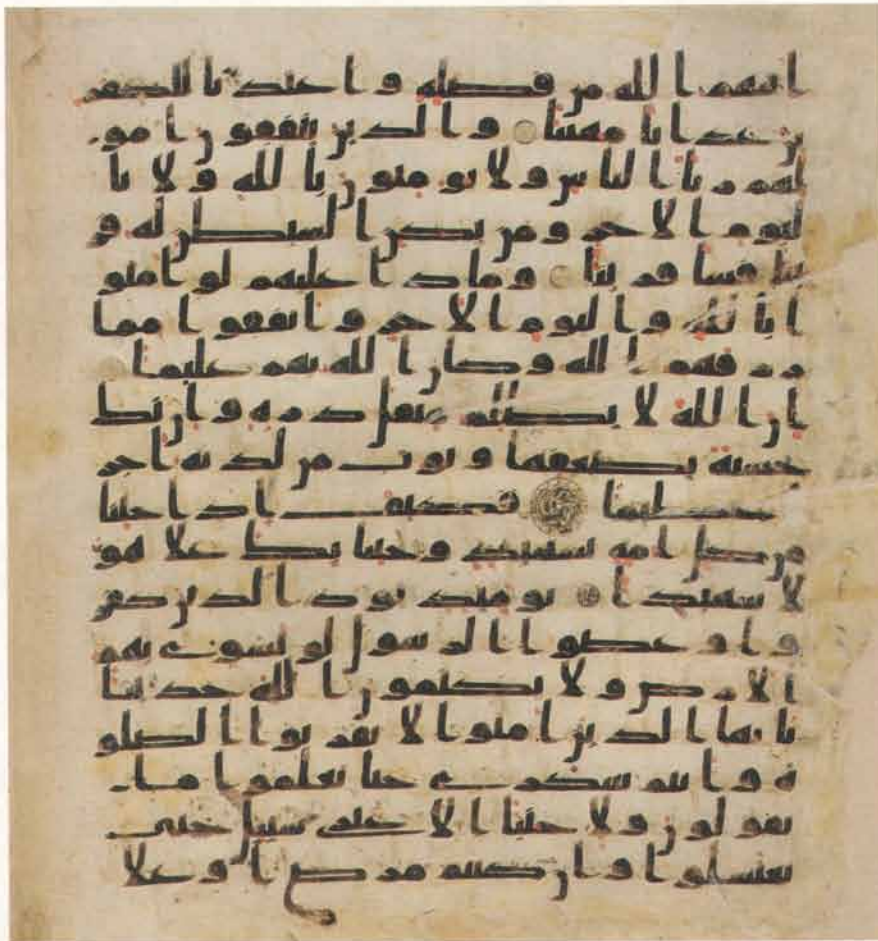 اتيهم الله من فضله واعتدنا للكفر
ين عذابا مهينا والذين ينفقون امو
لهم ريا الناس ولا يومنون بالله ولا با
ليوم الاخر ومن يكن الشيطن له قر
ينا فسا قرينا وماذا عليهم لو امنو
ا بالله واليوم الاخر وانفقوا مما
رزقهم الله وكان الله بهم عليما
ان الله لا يظلم مثقل ذرة وان تك
حسنة يضعفها ويوت من لدنه اجر
ا عظيما فكيف اذا جئنا
من كل امة بشهيد وجئنا بك علا هو
لا شهيدا يومئذ يود الذين كفر
وا وعصوا الرسول لو تسوى بهم
الارض ولا يكتمون الله حديثا
يايها الذين امنوا لا تقربوا الصلو
ة وانتم سكرى حتا تعلموا ما
تقولون ولا جنبا الا عابري سبيل حتى
تغتسلوا وان كنتم مرضا او علا